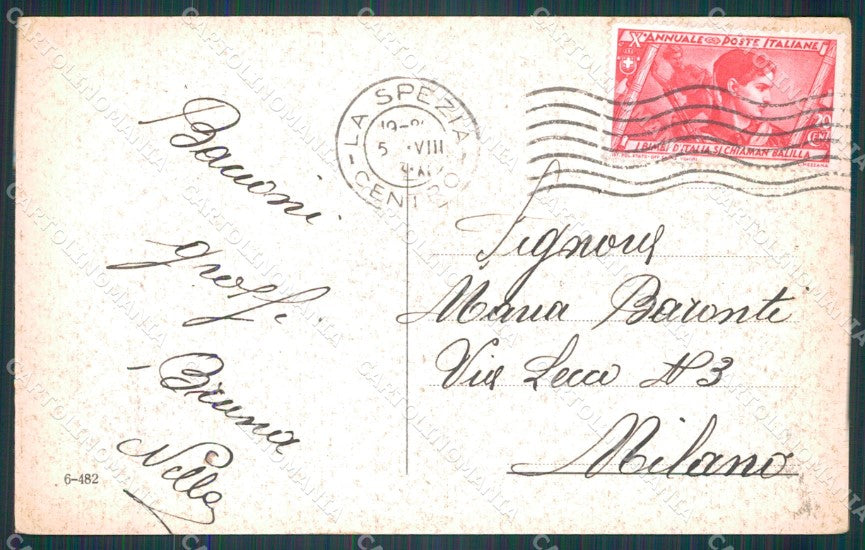 Xº ANNUALE POSTE ITALIANE
20
CENT
I BIMBI D'ITALIA SI CHIAMAN BALILLA
LA SPEZIA
5 VIII
CENTRO
Bacioni
grossi
Bruna
Nella
Signora
Maria Baronti
Via Lecco N 3
Milano
6-482
CARTOLINOMANIA